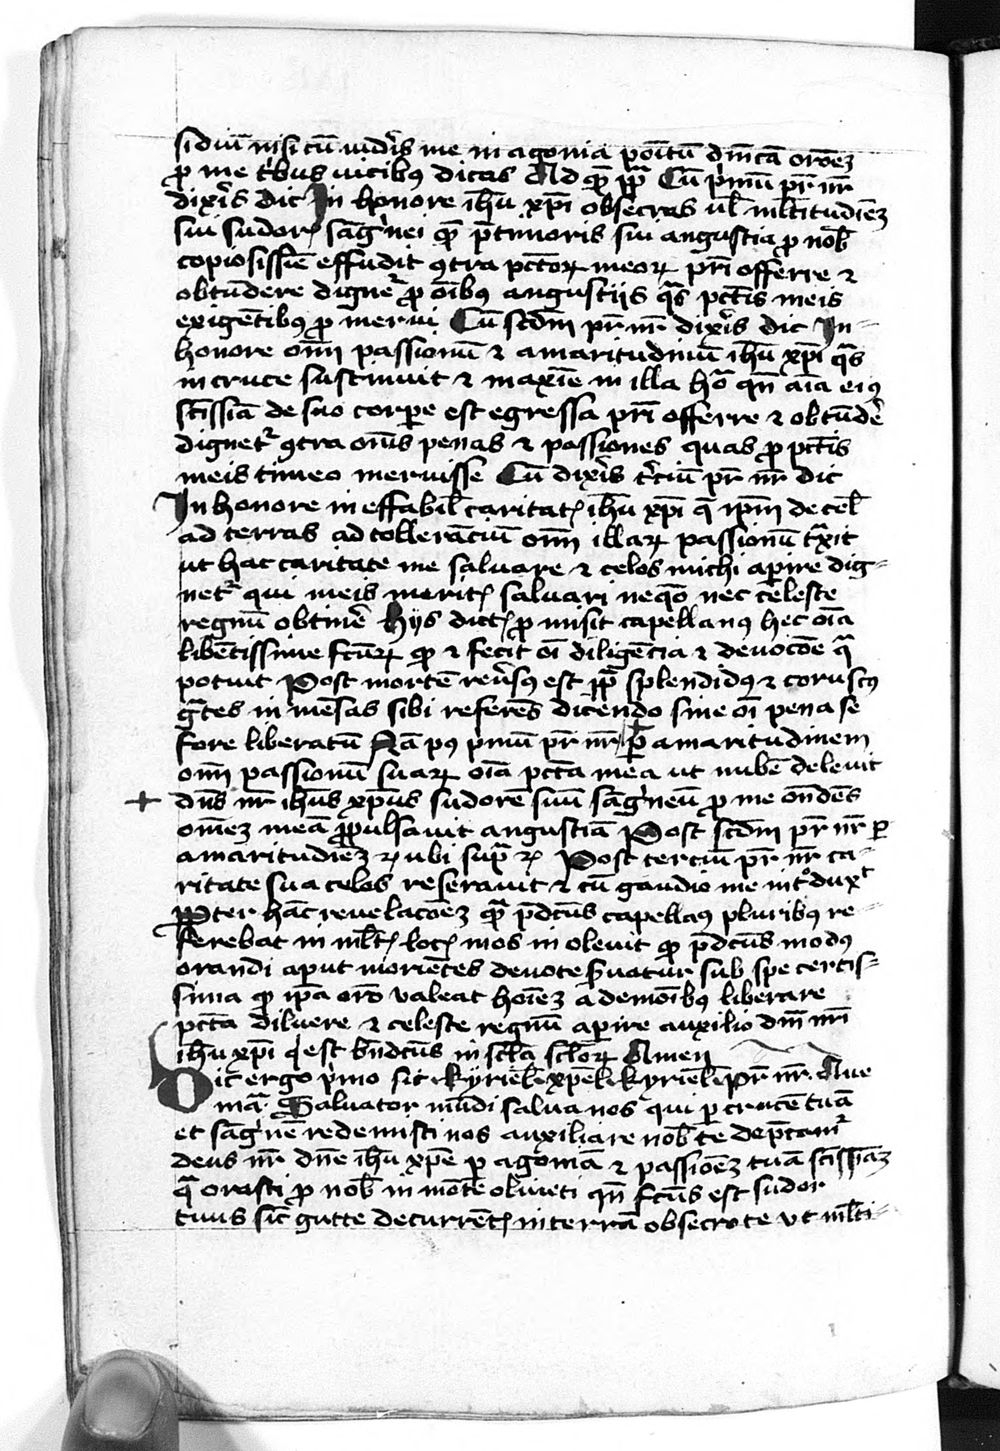 sidiū nisi cū viderꝭ me in agonia poītū dn̄icā orōeꝫ
ꝓ me tribus vicibꝰ dicas Ad qd̄ pp̄a Cū pͥmū pr̄ nr̄
dixeris dic In honore ihū xp̄i obsecras ul̄ ml̄titudīeꝫ
sui sudorꝭ sāgͥnei qm̄ p̄ timoris sui angustia ꝓ nob̄
copiosissīe effudit ꝯtra pctōꝝ meoꝝ pr̄i offerre ⁊
obtūdere digneͬ ꝓ oībꝰ angustijs qͣs pctīs meis
exigētibꝰ ꝓmerui Cū scdm̄ pr̄ nr̄ dixeris dic In
honore om̄i passionū ⁊ amaritudinū ihū xp̄i qͣs
in cruce sustinuit ⁊ maxīe in illa hͦa qn̄ aīa eiꝰ
sc̄issīa de suo corꝑe est egressa pr̄i offerre ⁊ obtūdē
dignetͬ ꝯtra om̄s penas ⁊ passiones quas ꝓ pctīs
meis timeo meruisse Cū dixeris tͥciū pr̄ nr̄ dic
In honore ineffabil̄ caritatꝭ ihū xp̄i qͣ ip̄m de cel̄
ad terras ad tollerāciū om̄i illaꝝ passionū tͣxit
ut hac caritate me saluare ⁊ celos michi aperire dig-
netͬ qui meis meritꝭ saluari neqͦ nec celeste
regnū obtinē̄ Hijs dictꝭ ꝓmisit capellanꝰ hec oīa
libētissime fc̄uꝝ qd̄ ⁊ fecit oī diligēcia ⁊ deuocōe qͣ
potuit Post mortē reuersꝰ est pp̄a splendidꝰ ⁊ coruscꝰ
gͣtes inmēsas sibi referēs dicendo sine oī pena se
fore liberatū Nā pꝰ pͥmū pr̄ nr̄ ꝑ amaritudinem
om̄i passionū suaꝝ oīa pctā mea ut nubē deleuit
+ dn̄s nr̄ ihūs xp̄us sudorē suū sāgͥneū ꝓ me on̄dēs
om̄eꝫ meā ꝓpulsauit angustiā Post scdm̄ pr̄ nr̄ ꝑ
amaritudīeꝫ ⁊ ubi supͣ ⁊ Post tercium pr̄ nr̄ ca-
ritate sua celos reserauit ⁊ cū gaudio me intͦduxͭ
Ꝓpter hāc reuelacōeꝫ qm̄ p̄dcūs capellanꝰ pluribꝰ re-
ferebat in ml̄tꝭ locꝭ mos inoleuit qd̄ p̄dcūs modꝰ
orandi aput moriētes deuote s̄uatur sub spe certis-
sima qd̄ ip̄a orō valeat hoīeꝫ a demoībꝰ liberare
pctā diluere ⁊ celeste regnū aperire auxilio dn̄i nr̄i
ihū xp̄i qͥ est bn̄dcūs in sc̄la sc̄loꝝ Amen
Dic ergo pͥmo sic kyriel̄ xp̄el̄ kyriel̄ pr̄ nr̄ Aue
mͣa Saluator mūdi salua nos qui per crucē tuā
et sāgͥnē redemisti nos auxiliare nob̄ te dep̄camͬ
deus nr̄ dn̄e ihū xp̄e ꝑ agoniā ⁊ passioēꝫ tuā sc̄issīaꝫ
qͣ orasti ꝓ nob̄ in mōte oliueti qn̄ fc̄us est sudor
tuus sic̄ gutte decurrētꝭ in terrā obsecro te vt ml̄ti-